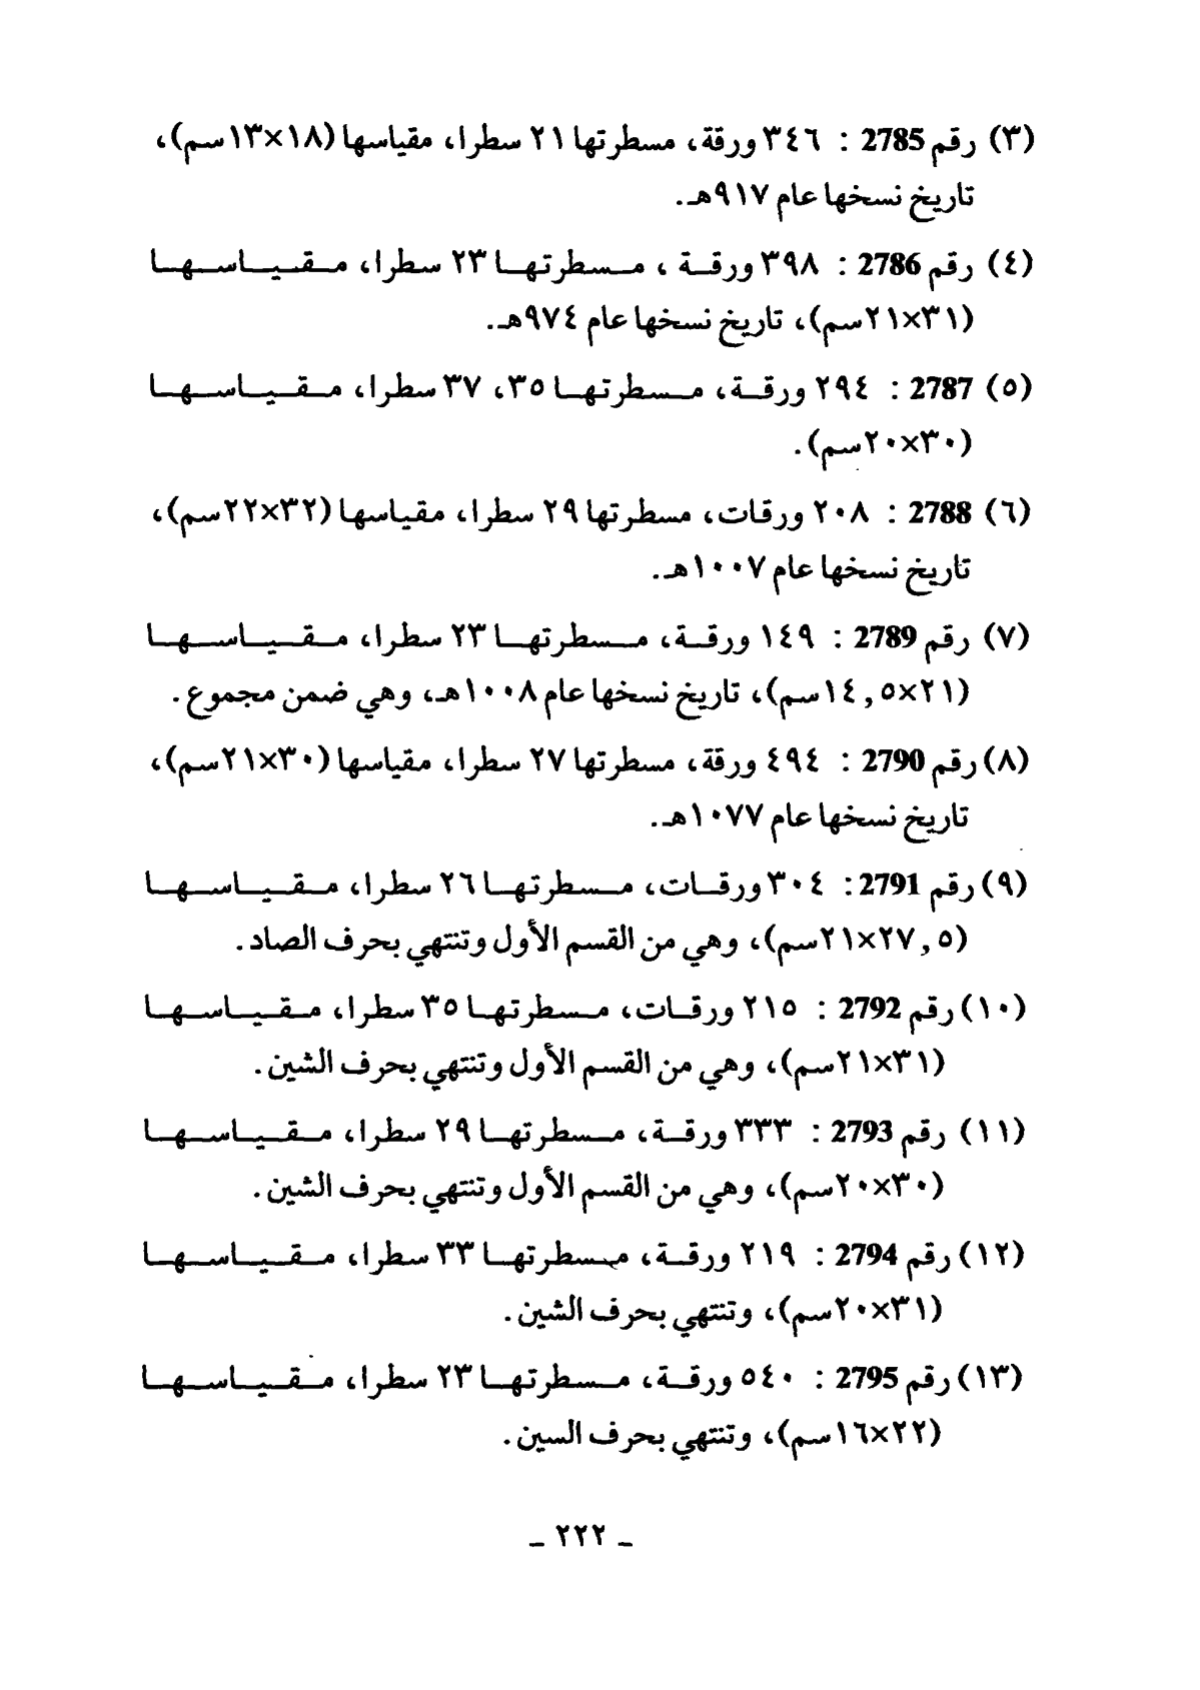 (٣) رقم 2785 : ٣٤٦ ورقة، مسطرتها ٢١ سطرا، مقياسها (١٨×١٣سم)،
تاريخ نسخها عام ٩١٧هـ.
(٤) رقم 2786 : ٣٩٨ ورقة ، مسطرتها ٢٣ سطرا، مقياسها
(٣١×٢١سم)، تاريخ نسخها عام ٩٧٤هـ.
(٥) 2787 : ٢٩٤ ورقة، مسطرتها ٣٥، ٣٧ سطرا، مقياسها
(٣٠×٢٠سم).
(٦) 2788 : ٢٠٨ ورقات، مسطرتها ٢٩ سطرا، مقياسها (٣٢×٢٢سم)،
تاريخ نسخها عام ١٠٠٧هـ.
(٧) رقم 2789 : ١٤٩ ورقة، مسطرتها ٢٣ سطرا، مقياسها
(٢١×١٤,٥سم)، تاريخ نسخها عام ١٠٠٨هـ، وهي ضمن مجموع.
(٨) رقم 2790 : ٤٩٤ ورقة، مسطرتها ٢٧ سطرا، مقياسها (٣٠×٢١سم)،
تاريخ نسخها عام ١٠٧٧هـ.
(٩) رقم 2791 : ٣٠٤ ورقات، مسطرتها ٢٦ سطرا، مقياسها
(٢٧,٥×٢١سم)، وهي من القسم الأول وتنتهي بحرف الصاد.
(١٠) رقم 2792 : ٢١٥ ورقات، مسطرتها ٣٥ سطرا، مقياسها
(٣١×٢١سم)، وهي من القسم الأول وتنتهي بحرف الشين.
(١١) رقم 2793 : ٣٣٣ ورقة، مسطرتها ٢٩ سطرا، مقياسها
(٣٠×٢٠سم)، وهي من القسم الأول وتنتهي بحرف الشين.
(١٢) رقم 2794 : ٢١٩ ورقة، مسطرتها ٣٣ سطرا، مقياسها
(٣١×٢٠سم)، وتنتهي بحرف الشين.
(١٣) رقم 2795 : ٥٤٠ ورقة، مسطرتها ٢٣ سطرا، مقياسها
(٢٢×١٦سم)، وتنتهي بحرف السين.
ـ ٢٢٢ ـ